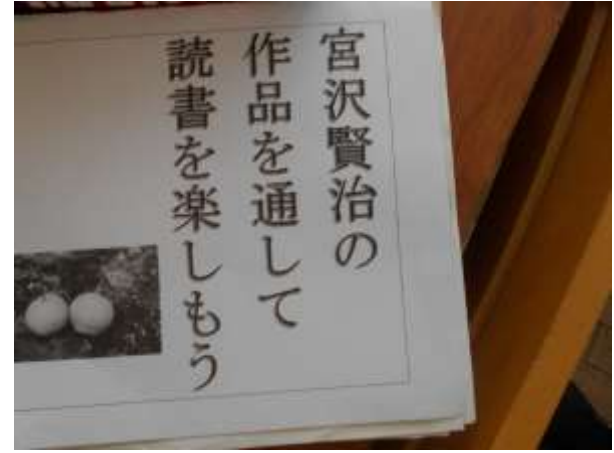 宮沢賢治の
作品を通して
読書を楽しもう